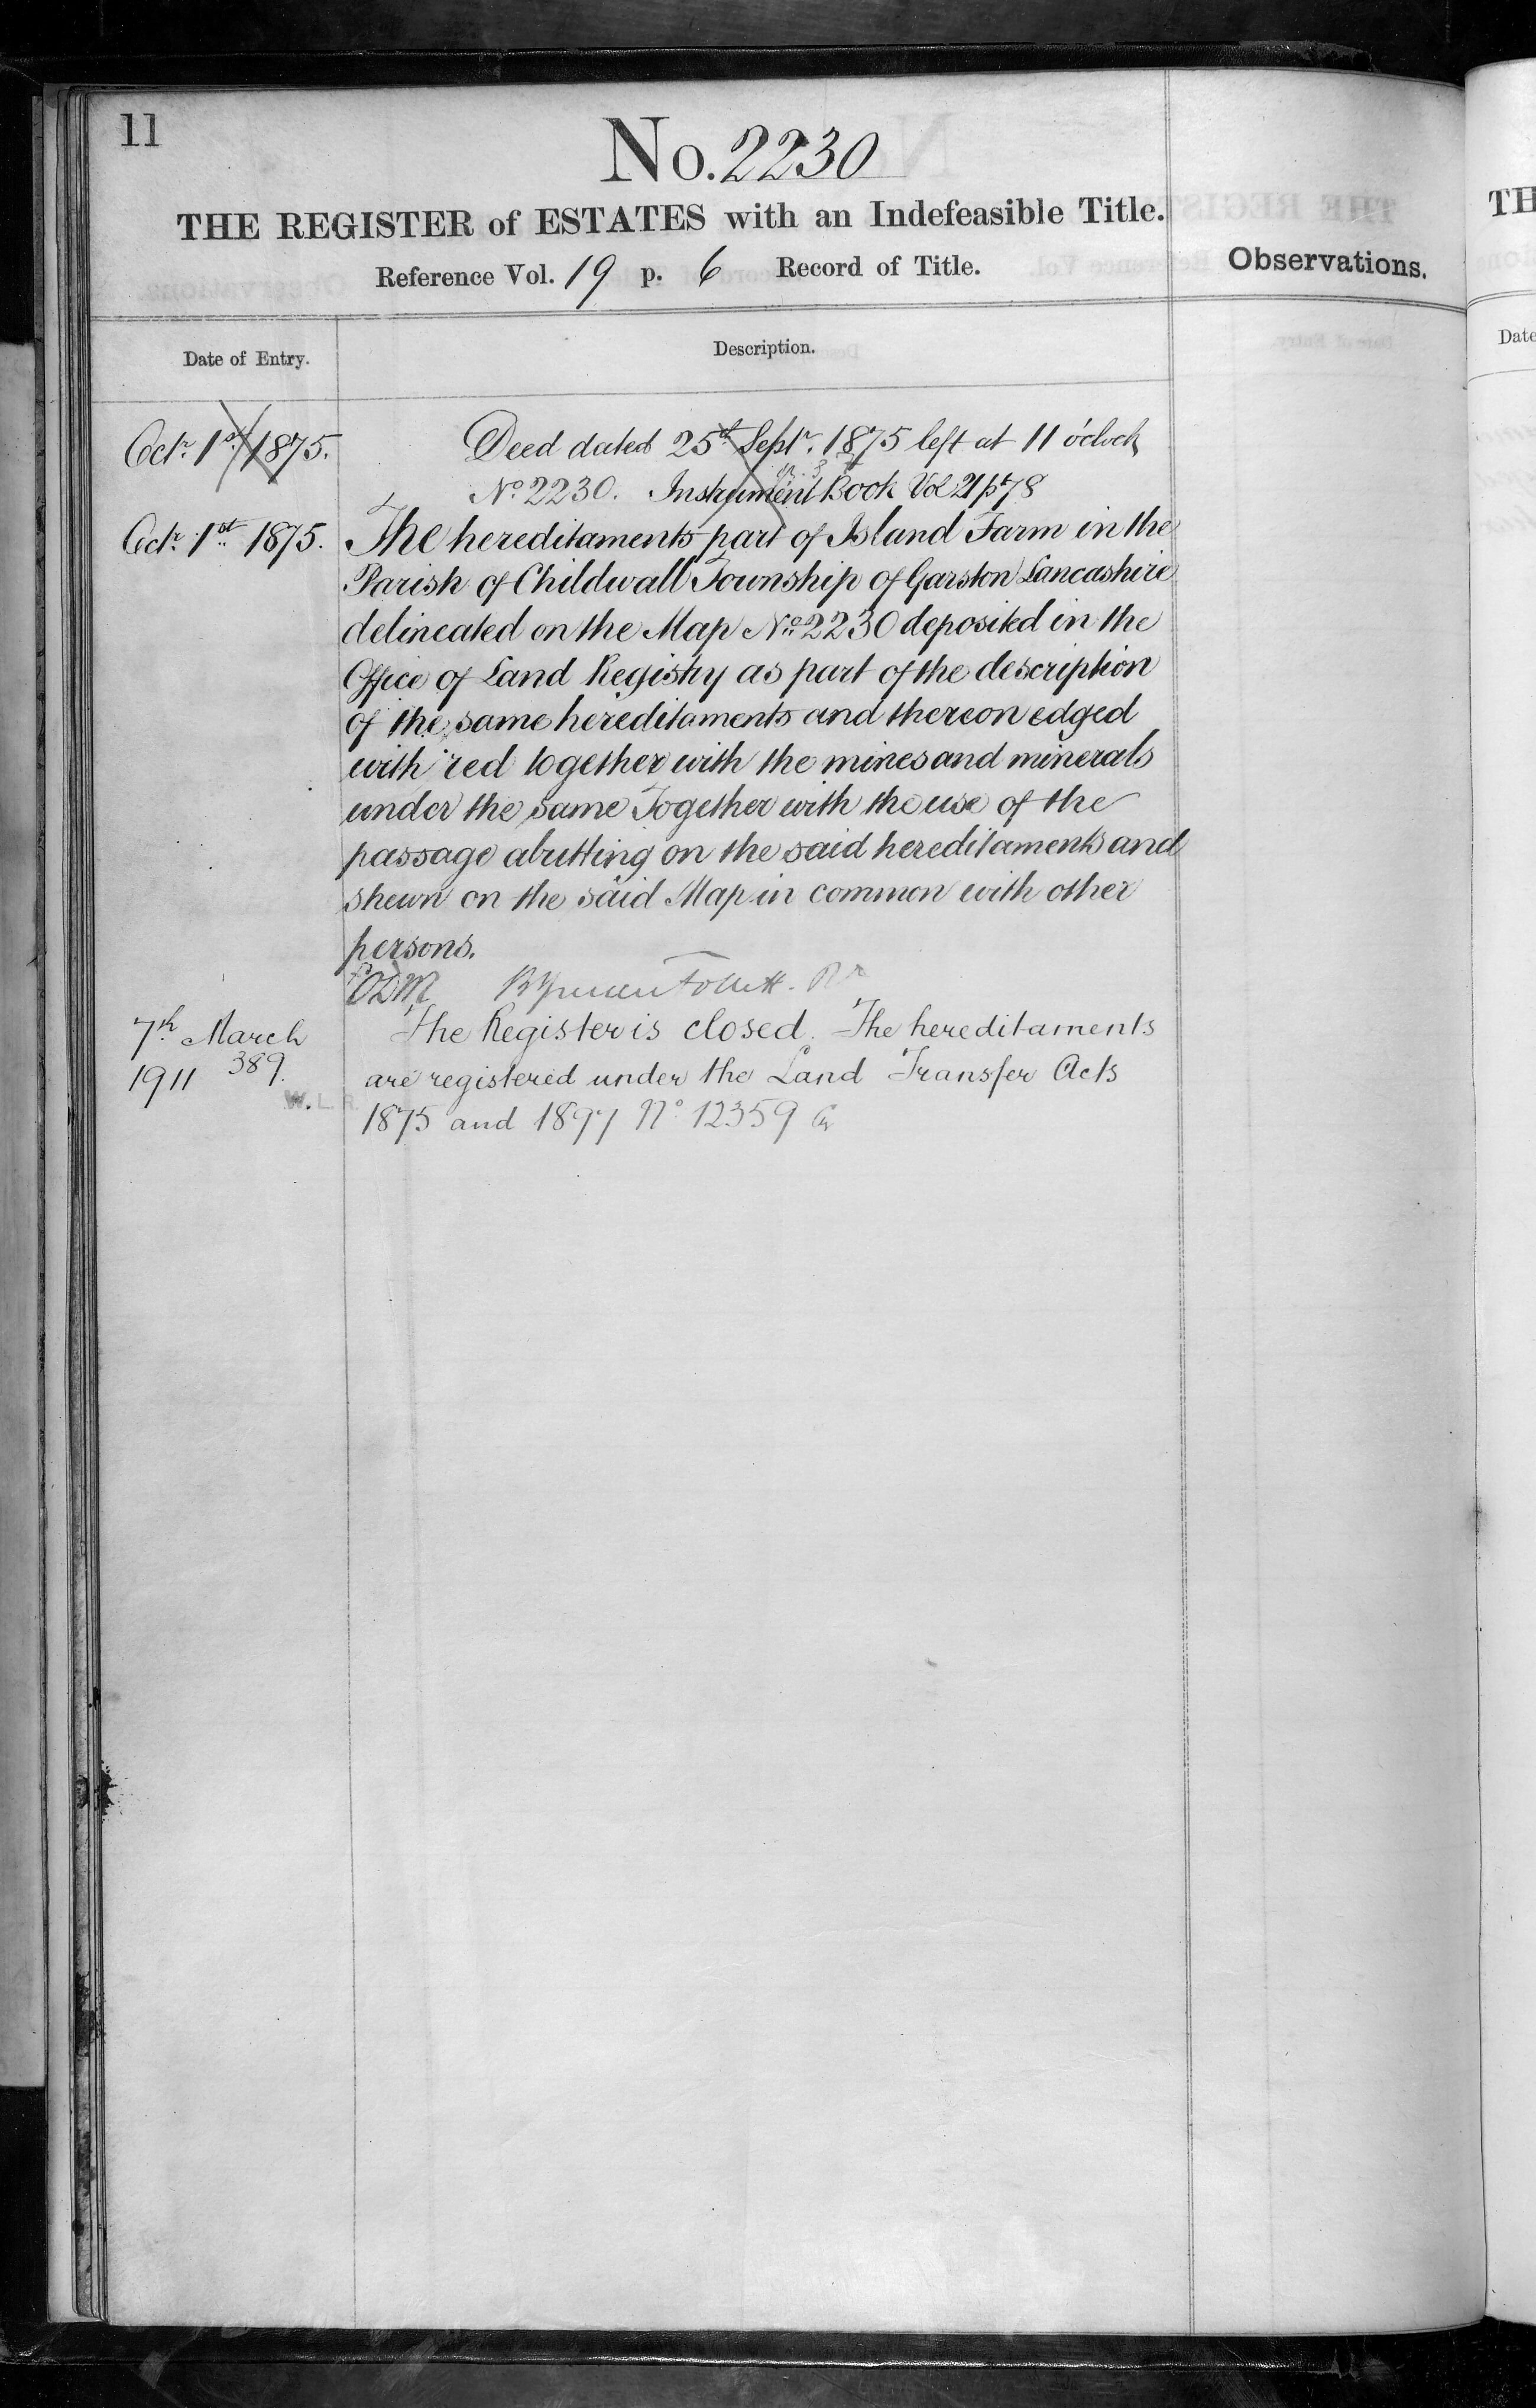 11
No. 2230
THE REGISTER of ESTATES with an Indefeasible Title.
Reference Vol. 19 p. 6 Record of Title.
Observations.
Date of Entry.
Description.
Octr. 1st 1875.
Deed dated 25th Septr. 1875 left at 11 o'clock
No. 2230. Instrument Book Vol 21 p 78
Octr. 1st 1875.
The hereditaments part of Island Farm in the
Parish of Childwall Township of Garston Lancashire
delineated on the Map No. 2230 deposited in the
Office of Land Registry as part of the description
of the same hereditaments and thereon edged
with red together with the mines and minerals
under the same Together with the use of the
passage abutting on the said hereditaments and
shewn on the said Map in common with other
persons.
Follett. Rr
7th March
1911 389.
W.L.R.
The Register is closed. The hereditaments
are registered under the Land Transfer Acts
1875 and 1897 No. 12359
TH
Date